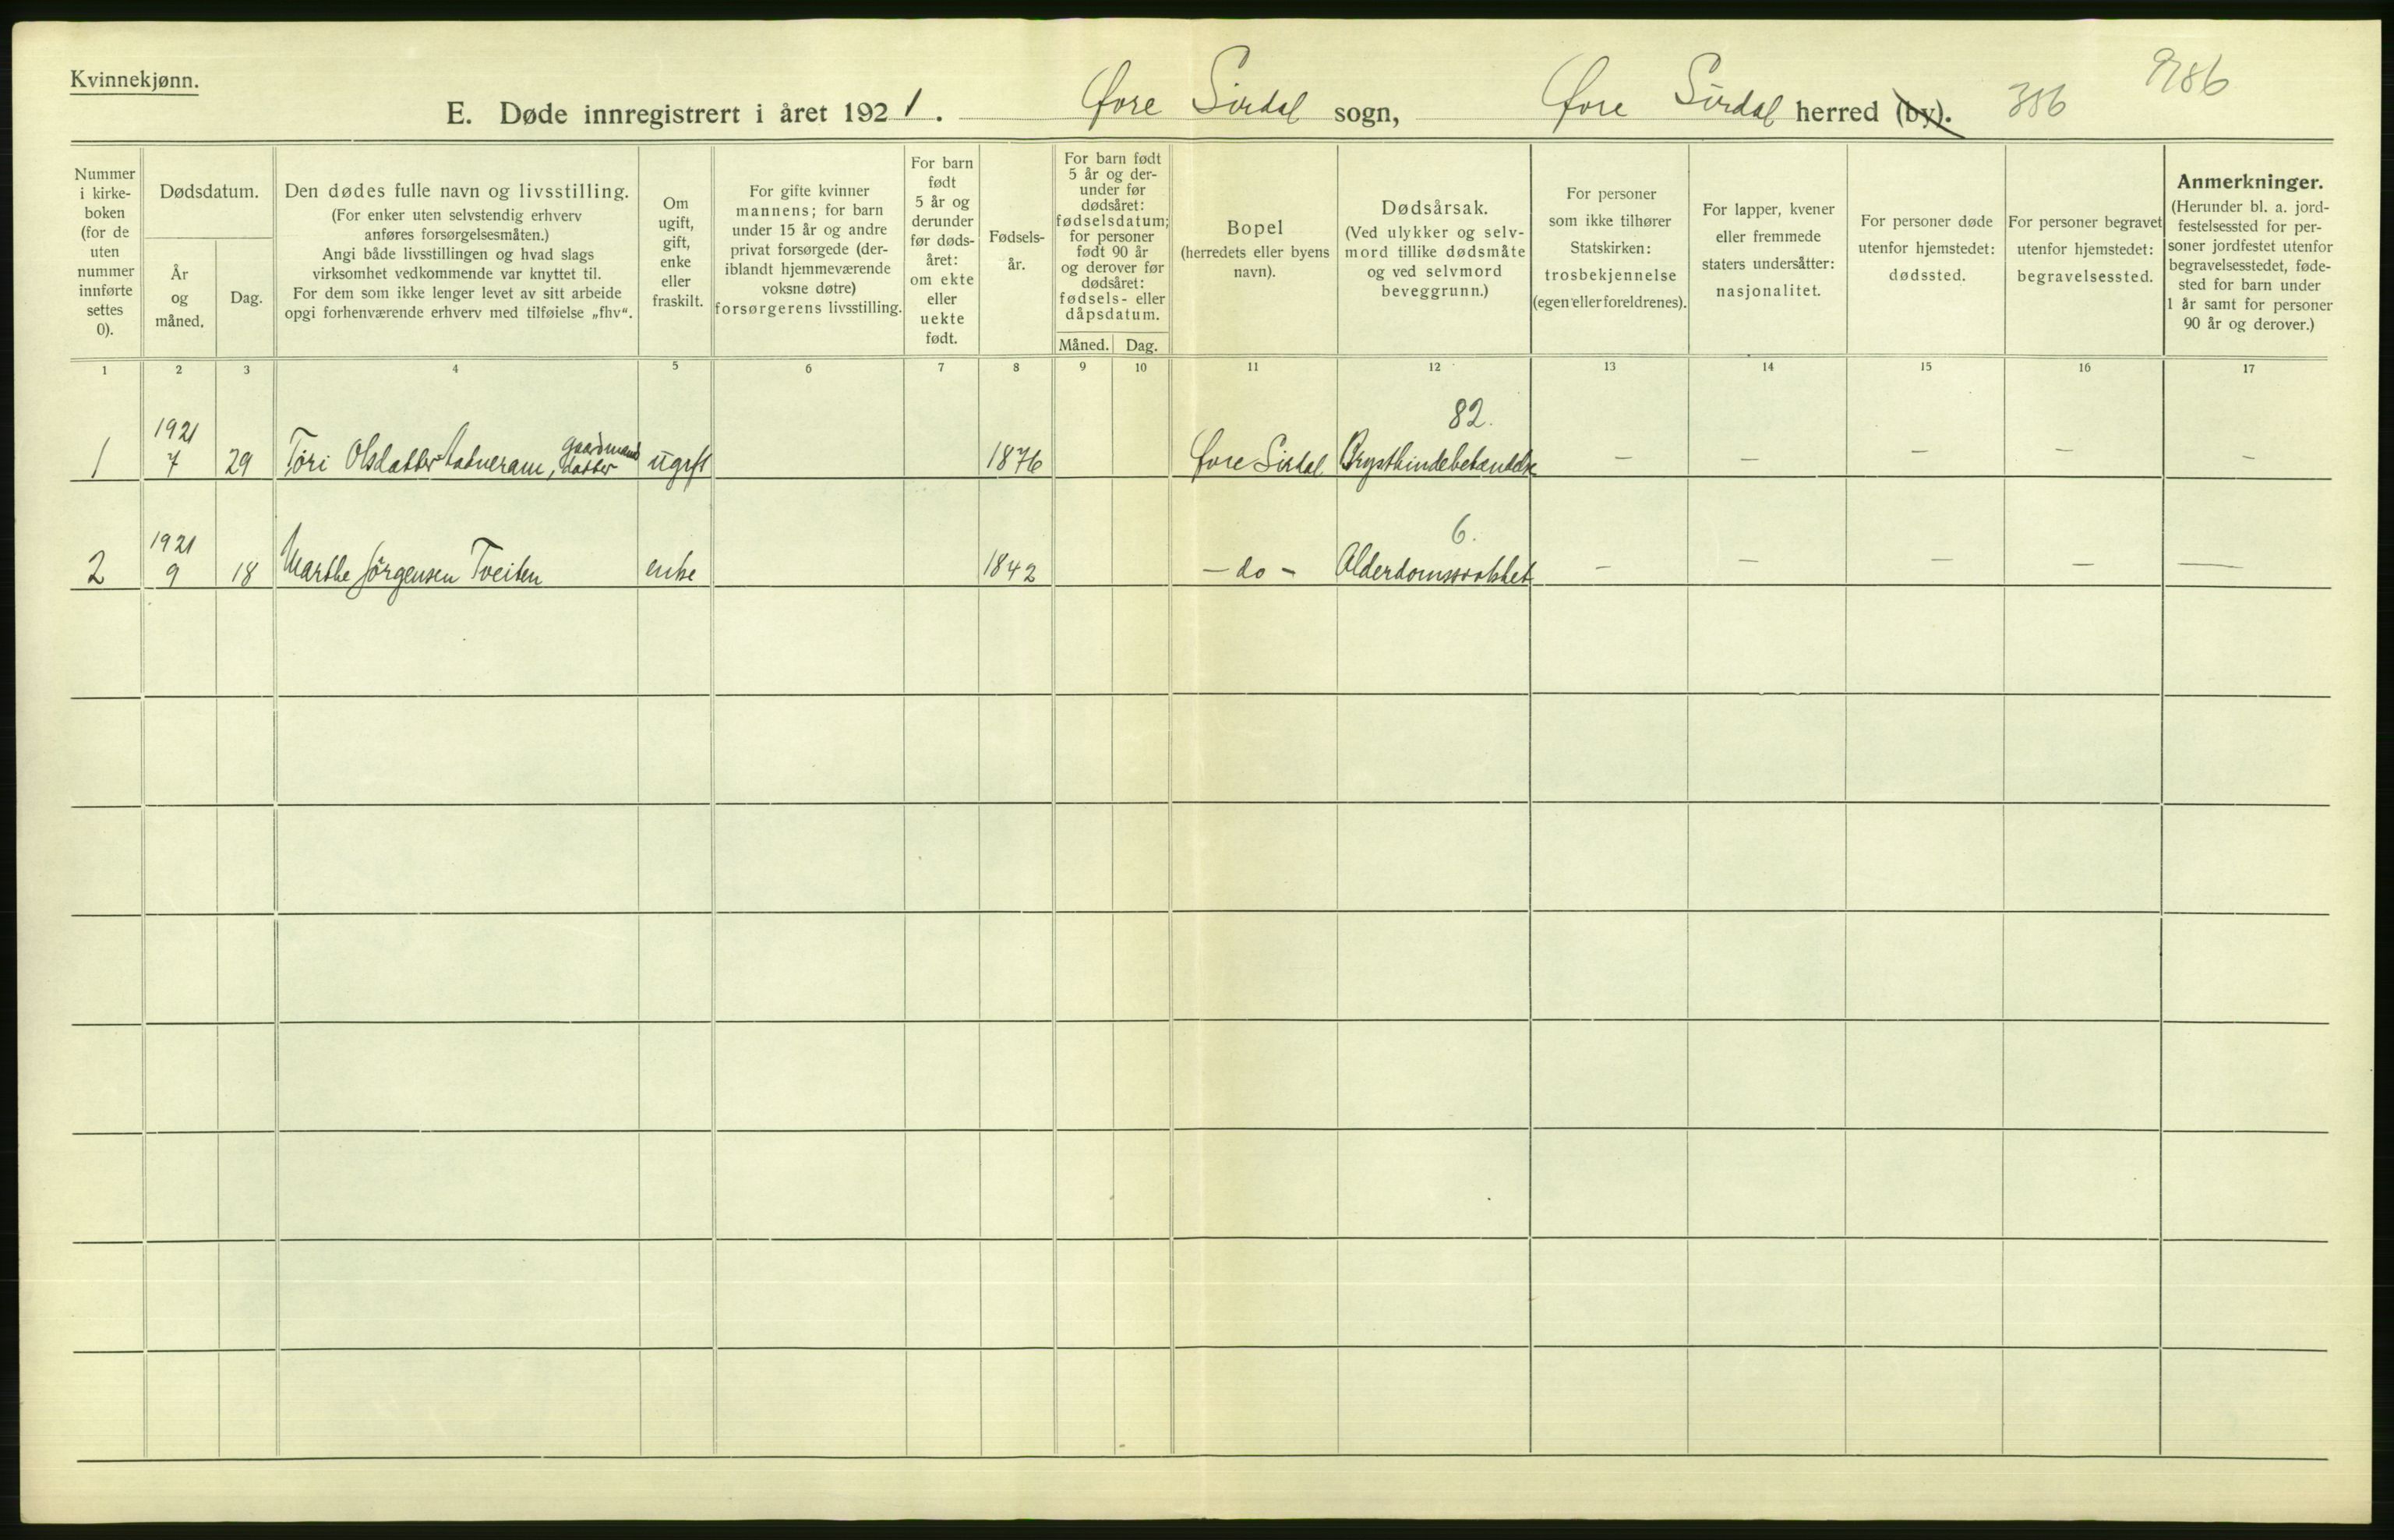 Kvinnekjønn.
9186
E. Døde innregistrert i året 1921. Øvre Sirdal sogn, Øvre Sirdal herred (by). 386
Nummer i kirke-boken (for de uten nummer innførte settes 0).
Dødsdatum.
År og måned.
Dag.
Den dødes fulle navn og livsstilling.
(For enker uten selvstendig erhverv
anføres forsørgelsesmåten.)
Angi både livsstillingen og hvad slags
virksomhet vedkommende var knyttet til.
For dem som ikke lenger levet av sitt arbeide
opgi forhenværende erhverv med tilføielse „fhv“.
Om
ugift,
gift,
enke
eller
fraskilt.
For gifte kvinner
mannens; for barn
under 15 år og andre
privat forsørgede (der-
iblandt hjemmeværende
voksne døtre)
forsørgerens livsstilling.
For barn
født
5 år og
derunder
før døds-
året:
om ekte
eller
uekte
født.
Fødsels-
år.
For barn født
5 år og der-
under før
dødsåret:
fødselsdatum;
for personer
født 90 år
og derover før
dødsåret:
fødsels- eller
dåpsdatum.
Måned. Dag.
Bopel
(herredets eller byens
navn).
Dødsårsak.
(Ved ulykker og selv-
mord tillike dødsmåte
og ved selvmord
beveggrunn.)
For personer
som ikke tilhører
Statskirken:
trosbekjennelse
(egen eller foreldrenes).
For lapper, kvener
eller fremmede
staters undersåtter:
nasjonalitet.
For personer døde
utenfor hjemstedet:
dødssted.
For personer begravet
utenfor hjemstedet:
begravelsessted.
Anmerkninger.
(Herunder bl. a. jord-
festelsessted for per-
soner jordfestet utenfor
begravelsesstedet, føde-
sted for barn under
1 år samt for personer
90 år og derover.)
1 2 3 4 5 6 7 8 9 10 11 12 13 14 15 16 17
82.
1921
1 7 29 Töri Olsdatter, gaardmands datter ugift 1876 Øvre Sirdal Brysthindebetændelse — — — — —
6.
1921
2 9 18 Marthe Jörgensen Tveiten enke 1842 — do — Alderdomssvakhet — — — — —